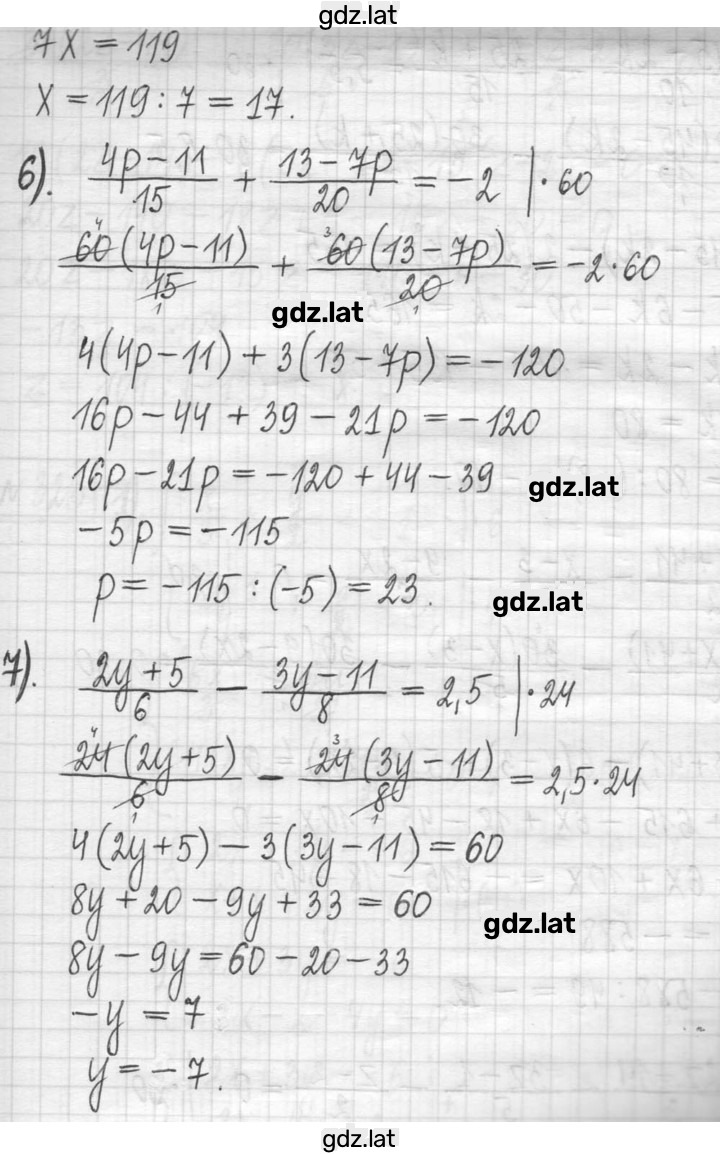 gdz.lat
7x = 119
x = 119 : 7 = 17.
6). (4p − 11)/15 + (13 − 7p)/20 = −2 | · 60
60(4p − 11)/15 + 60(13 − 7p)/20 = −2 · 60
gdz.lat
4(4p − 11) + 3(13 − 7p) = −120
16p − 44 + 39 − 21p = −120
16p − 21p = −120 + 44 − 39
gdz.lat
−5p = −115
p = −115 : (−5) = 23.
gdz.lat
7). (2y + 5)/6 − (3y − 11)/8 = 2,5 | · 24
24(2y + 5)/6 − 24(3y − 11)/8 = 2,5 · 24
4(2y + 5) − 3(3y − 11) = 60
8y + 20 − 9y + 33 = 60
gdz.lat
8y − 9y = 60 − 20 − 33
−y = 7
y = −7.
gdz.lat